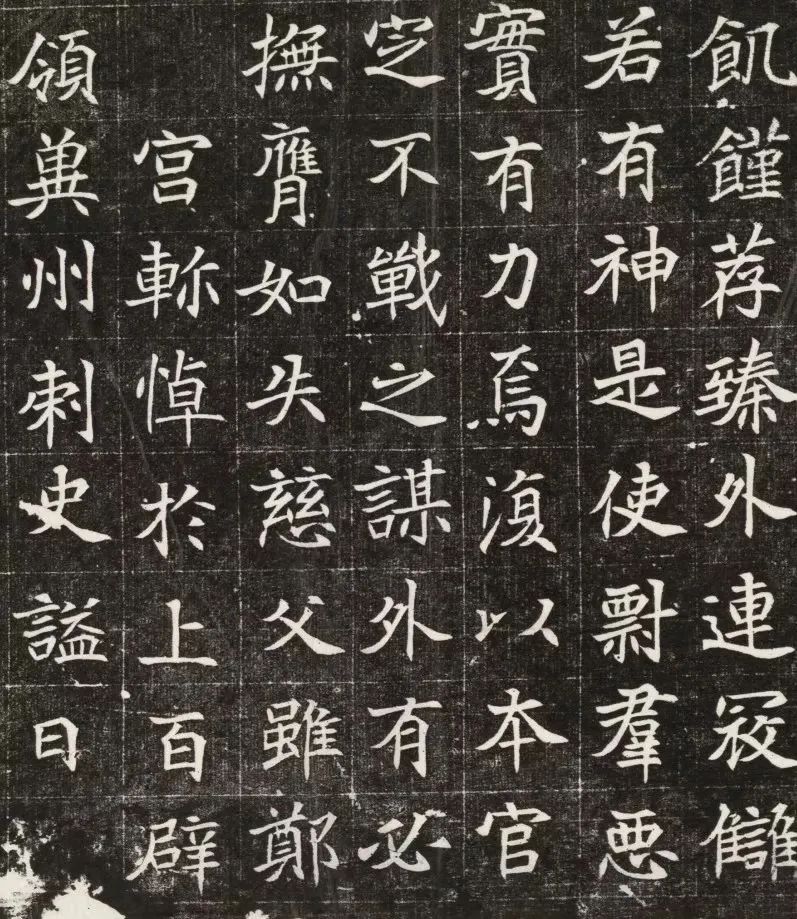 飢饉荐臻外連寇讎
若有神是使羣悪
實有力焉復以本官
定不戰之謀外有必
撫膺如失慈父雖鄭
宮軫悼於上百辟
領冀州刺史謚曰